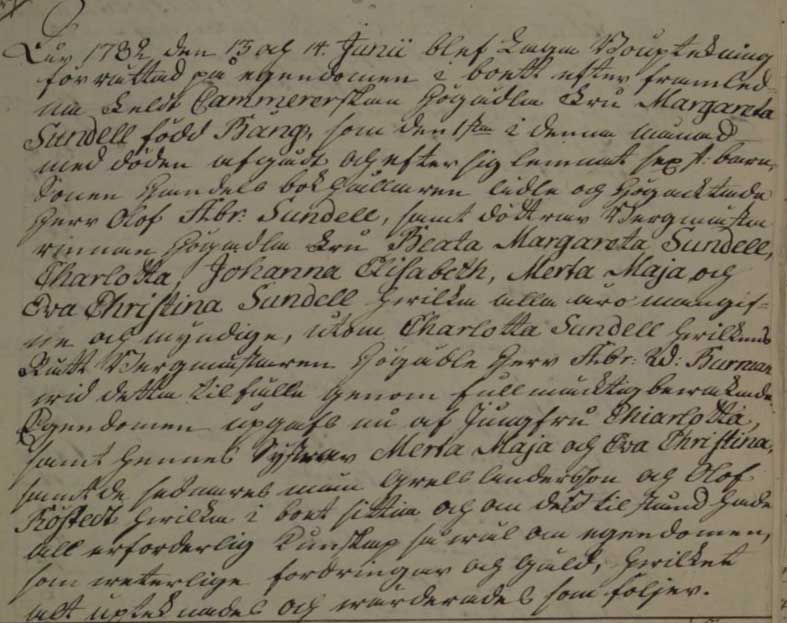 Åhr 1782 den 13 och 14 Junii blef Laga Bouptekning
förrättad på egendomen i boett efter framled-
na Cammererskan Högädla Fru Margareta
Sundell född Bång, som den 1sta i denna månad
med döden afgådt och efter sig lemnat sex st: barn,
sonen Handels bokhållaren Ädle och Högacktade
Herr Olof Abr: Sundell, samt döttrar Bergmästa-
rinnan Högädla Fru Beata Margareta Sundell,
Charlotta, Johanna Elisabeth, Merta Maja och
Eva Christina Sundell hvilka alla äro mangif-
ne och myndige, utom Charlotta Sundell hvilkens
Rätt Bergmästaren Högädle Herr Abr: Burman
wid detta tilfälle genom fullmäktig bewakade
Egendomen upgafs nu af Jungfru Charlotta,
samt hennes Systrar Merta Maja och Eva Christina,
samt de sednares män och Olof
hvilka i boet sittia och om dess tilstånd hade
all erforderlig Kunskap så wäl om egendomen,
som weterlige fordringar och Gäld, hvilket
alt upteknades och wärderades som följer.